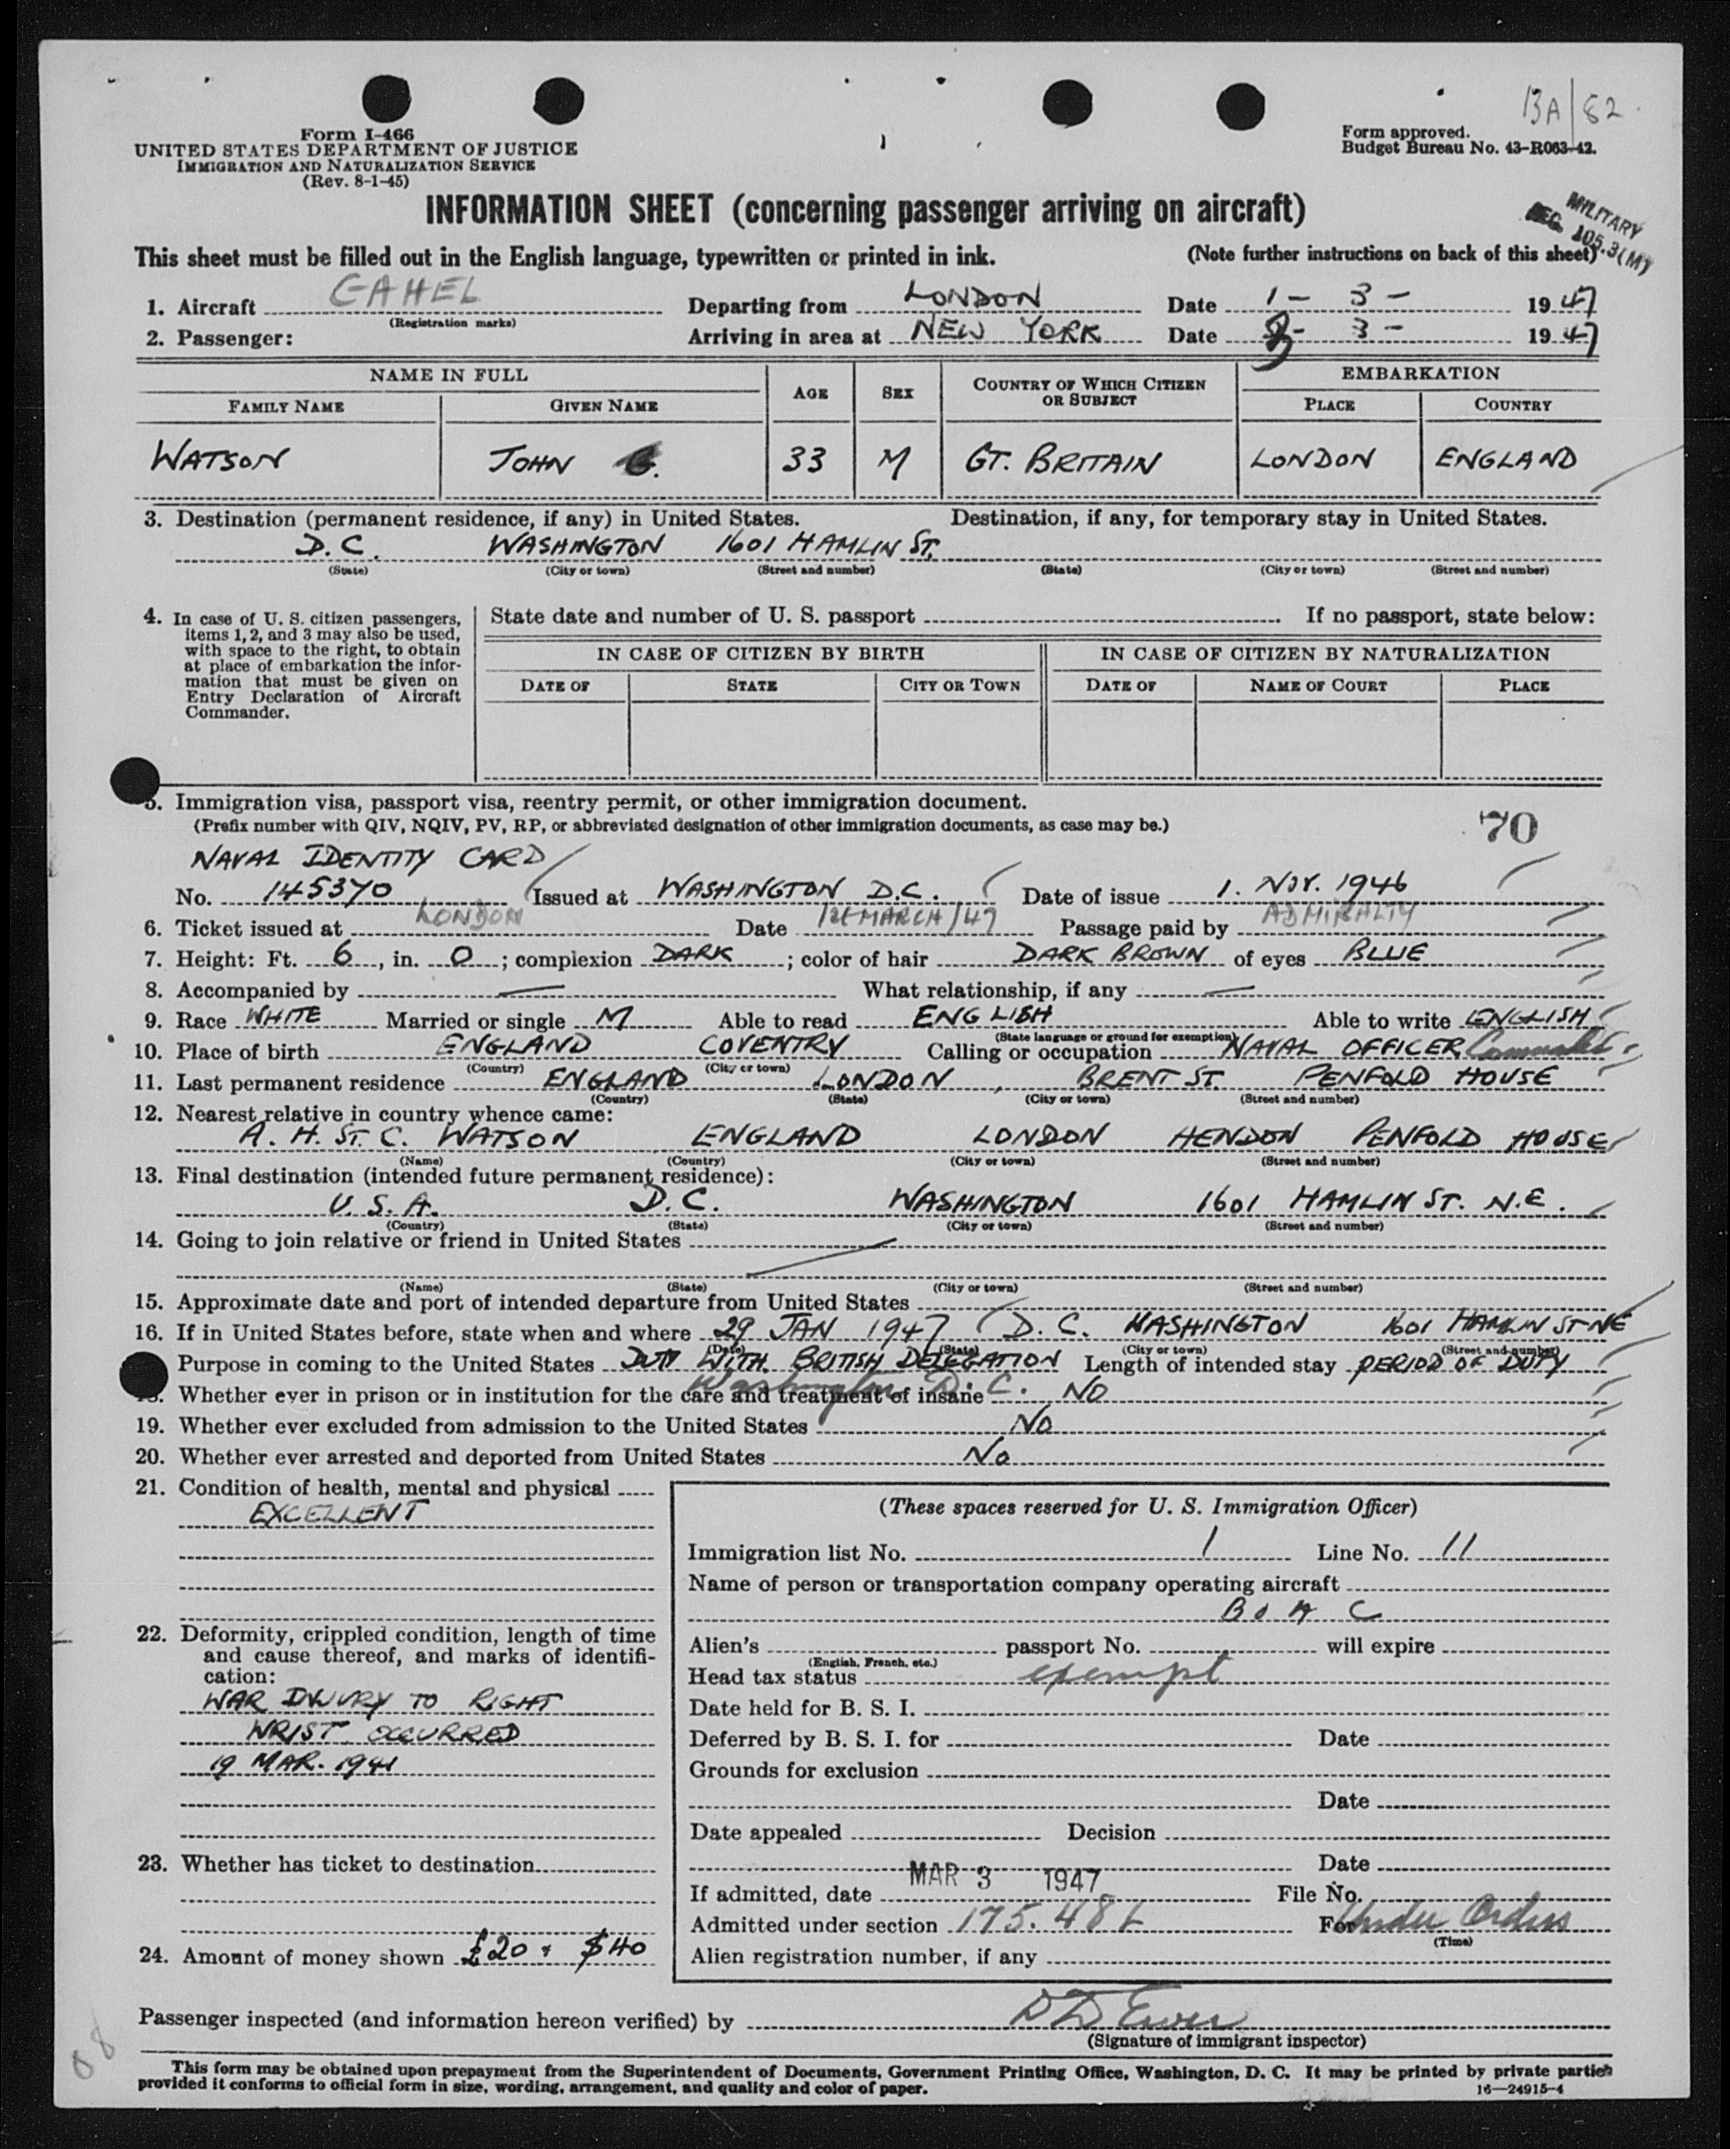 BA/82
Form I-466
UNITED STATES DEPARTMENT OF JUSTICE
IMMIGRATION AND NATURALIZATION SERVICE
(Rev. 8-1-45)
Form approved.
Budget Bureau No. 43-R063-42.
INFORMATION SHEET (concerning passenger arriving on aircraft)
MILITARY
REG. 105.3(M)
This sheet must be filled out in the English language, typewritten or printed in ink. (Note further instructions on back of this sheet)
1. Aircraft GAHEL Departing from LONDON Date 1 - 3 - 1947
(Registration marks)
2. Passenger: Arriving in area at NEW YORK Date 3 - 3 - 1947
NAME IN FULL AGE SEX COUNTRY OF WHICH CITIZEN OR SUBJECT EMBARKATION
FAMILY NAME GIVEN NAME PLACE COUNTRY
WATSON JOHN G. 33 M GT. BRITAIN LONDON ENGLAND
3. Destination (permanent residence, if any) in United States. Destination, if any, for temporary stay in United States.
D.C. WASHINGTON 1601 HAMLIN ST.
(State) (City or town) (Street and number) (State) (City or town) (Street and number)
4. In case of U. S. citizen passengers, items 1, 2, and 3 may also be used, with space to the right, to obtain at place of embarkation the information that must be given on Entry Declaration of Aircraft Commander.
State date and number of U. S. passport If no passport, state below:
IN CASE OF CITIZEN BY BIRTH IN CASE OF CITIZEN BY NATURALIZATION
DATE OF STATE CITY OR TOWN DATE OF NAME OF COURT PLACE
5. Immigration visa, passport visa, reentry permit, or other immigration document.
(Prefix number with QIV, NQIV, PV, RP, or abbreviated designation of other immigration documents, as case may be.)
70
NAVAL IDENTITY CARD
No. 145370 Issued at WASHINGTON D.C. Date of issue 1. NOV. 1946
6. Ticket issued at LONDON Date 1st MARCH/47 Passage paid by ADMIRALTY
7. Height: Ft. 6, in. 0; complexion DARK; color of hair DARK BROWN of eyes BLUE
8. Accompanied by — What relationship, if any —
9. Race WHITE Married or single M Able to read ENGLISH Able to write ENGLISH
(State language or ground for exemption)
10. Place of birth ENGLAND COVENTRY Calling or occupation NAVAL OFFICER
(Country) (City or town)
11. Last permanent residence ENGLAND LONDON, BRENT ST. PENFOLD HOUSE
(Country) (State) (City or town) (Street and number)
12. Nearest relative in country whence came:
A. H. ST. C. WATSON ENGLAND LONDON HENDON PENFOLD HOUSE
(Name) (Country) (City or town) (Street and number)
13. Final destination (intended future permanent residence):
U.S.A. D.C. WASHINGTON 1601 HAMLIN ST. N.E.
(Country) (State) (City or town) (Street and number)
14. Going to join relative or friend in United States
(Name) (State) (City or town) (Street and number)
15. Approximate date and port of intended departure from United States
16. If in United States before, state when and where 29 JAN 1947 D.C. WASHINGTON 1601 HAMLIN ST NE
(Date) (State) (City or town) (Street and number)
Purpose in coming to the United States DUTY WITH BRITISH DELEGATION Length of intended stay PERIOD OF DUTY
Washington D.C.
18. Whether ever in prison or in institution for the care and treatment of insane NO
19. Whether ever excluded from admission to the United States NO
20. Whether ever arrested and deported from United States NO
21. Condition of health, mental and physical
EXCELLENT
22. Deformity, crippled condition, length of time and cause thereof, and marks of identification:
WAR INJURY TO RIGHT
WRIST OCCURRED
19 MAR. 1941
23. Whether has ticket to destination
24. Amount of money shown £20 + $40
(These spaces reserved for U. S. Immigration Officer)
Immigration list No. 1 Line No. 11
Name of person or transportation company operating aircraft
B O A C
Alien's passport No. will expire
(English, French, etc.)
Head tax status exempt
Date held for B. S. I.
Deferred by B. S. I. for Date
Grounds for exclusion
Date
Date appealed Decision
Date
If admitted, date MAR 3 1947 File No.
Admitted under section 175.48 For Under Orders
(Time)
Alien registration number, if any
Passenger inspected (and information hereon verified) by
(Signature of immigrant inspector)
This form may be obtained upon prepayment from the Superintendent of Documents, Government Printing Office, Washington, D. C. It may be printed by private parties
provided it conforms to official form in size, wording, arrangement, and quality and color of paper. 16—24915-4